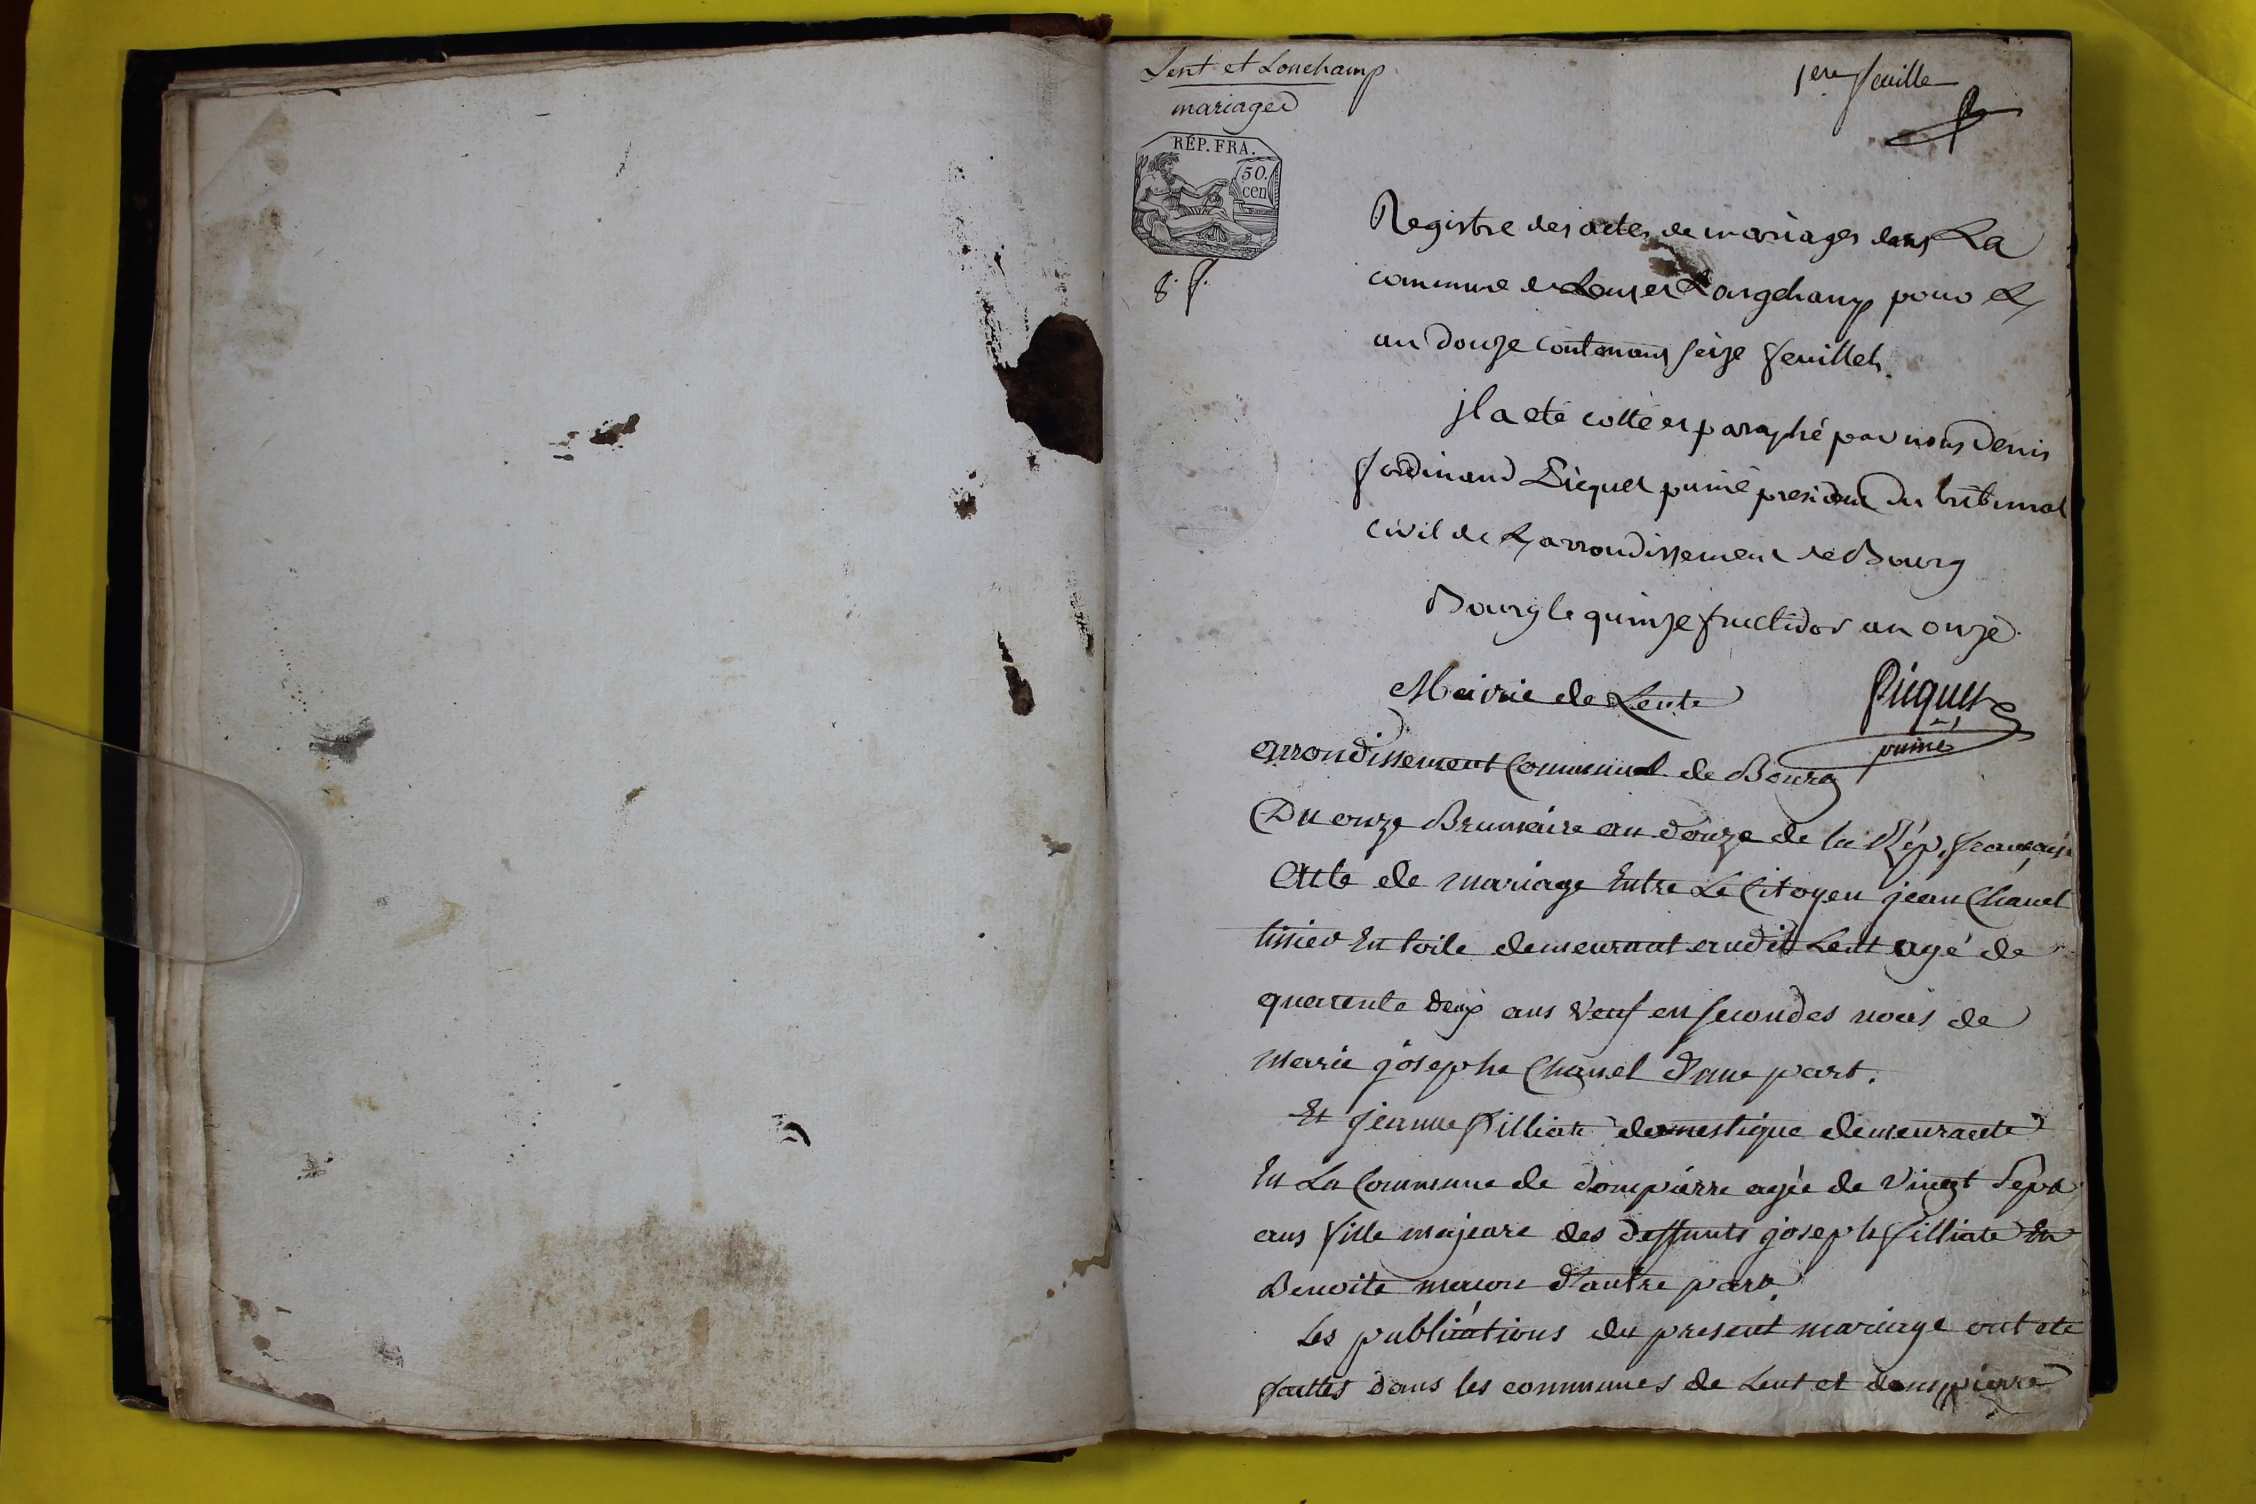 Lent et Lonchamp
mariages
1ere feuille
RÉP. FRA.
50.
cen
8. f.
Registre des actes de mariages dans La
commune de Lent et Longchamp pour L
an Douze contenant seize feuillets.
il a eté cotté et paraphé par nous Denis
ferdinand Picquet puiné president du tribunal
civil de L arrondissement de Bourg
Bourg le quinze fructidor an onze.
Picquet
puiné
Mairie de Lent
arrondissement Communal de Bourg
Du onze Brumaire an douze de la Rép. française
Acte de mariage Entre Le Citoyen jean Chanel
tissier En toile demeurant audit Lent agé de
quarente deux ans veuf en secondes nocis de
marie josephe Chanel d'une part.
Et jeanne filliate domestique demeurante
En La Commune de dompierre agée de vingt Sept
ans fille majeure des deffunts joseph filliate Et
Benoite mucon d'autre part.
Les publications du present mariage ont eté
faittes dans les communes de Lent et dompierre